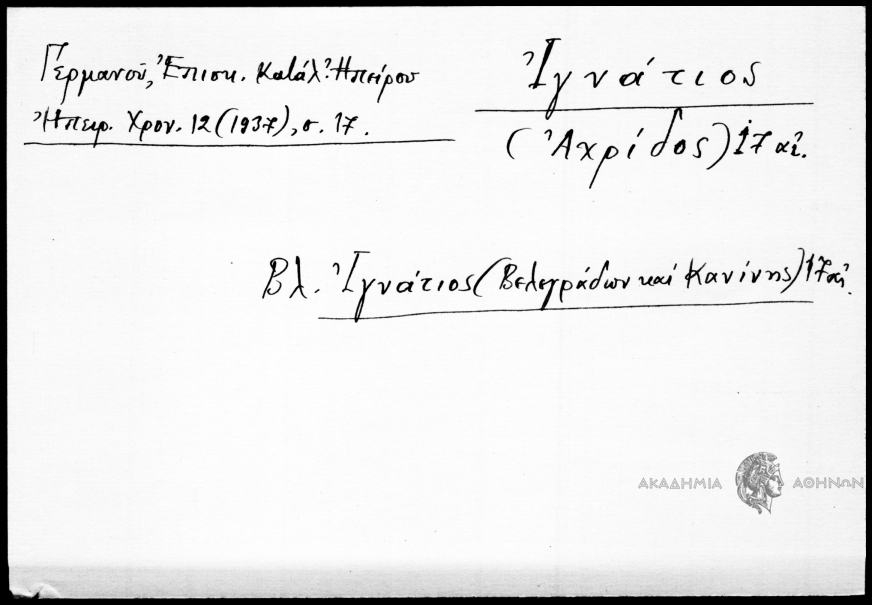 Γερμανοῦ, Ἐπισκ. Κατάλ. Ἠπείρου
Ἠπειρ. Χρον. 12 (1937), σ. 17.
Ἰγνάτιος
(Ἀχρίδος) 17 αἰ.
Βλ. Ἰγνάτιος (Βελεγράδων καί Κανίνης) 17 αἰ.
ΑΚΑΔΗΜΙΑ ΑΘΗΝΩΝ